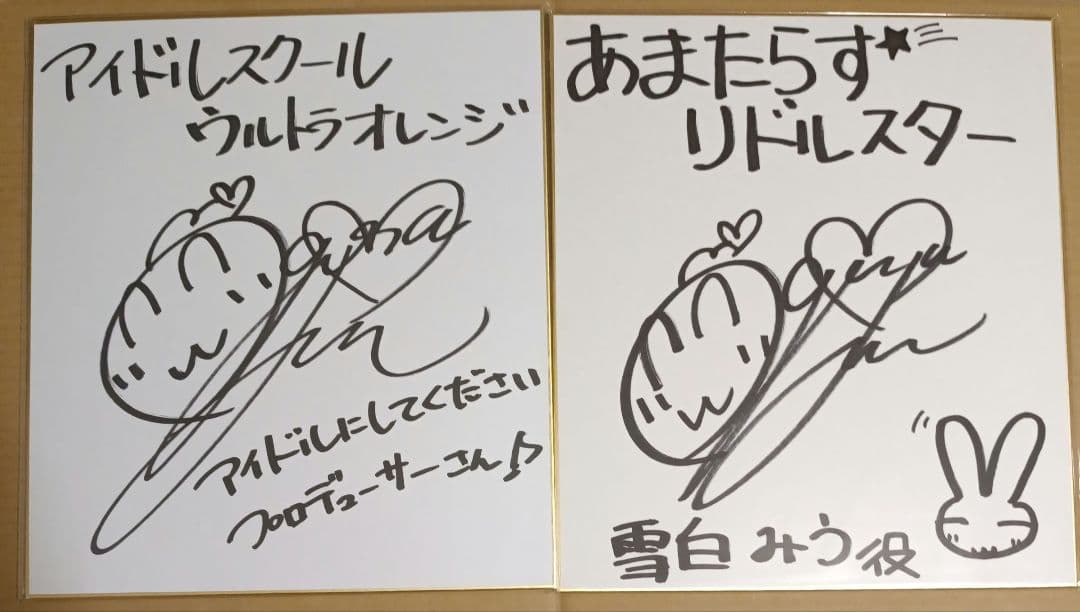 アイドルスクール
ウルトラオレンジ
アイドルにしてください
プロデューサーさん♪
あまたらす★
リドルスター
雪白 みう役